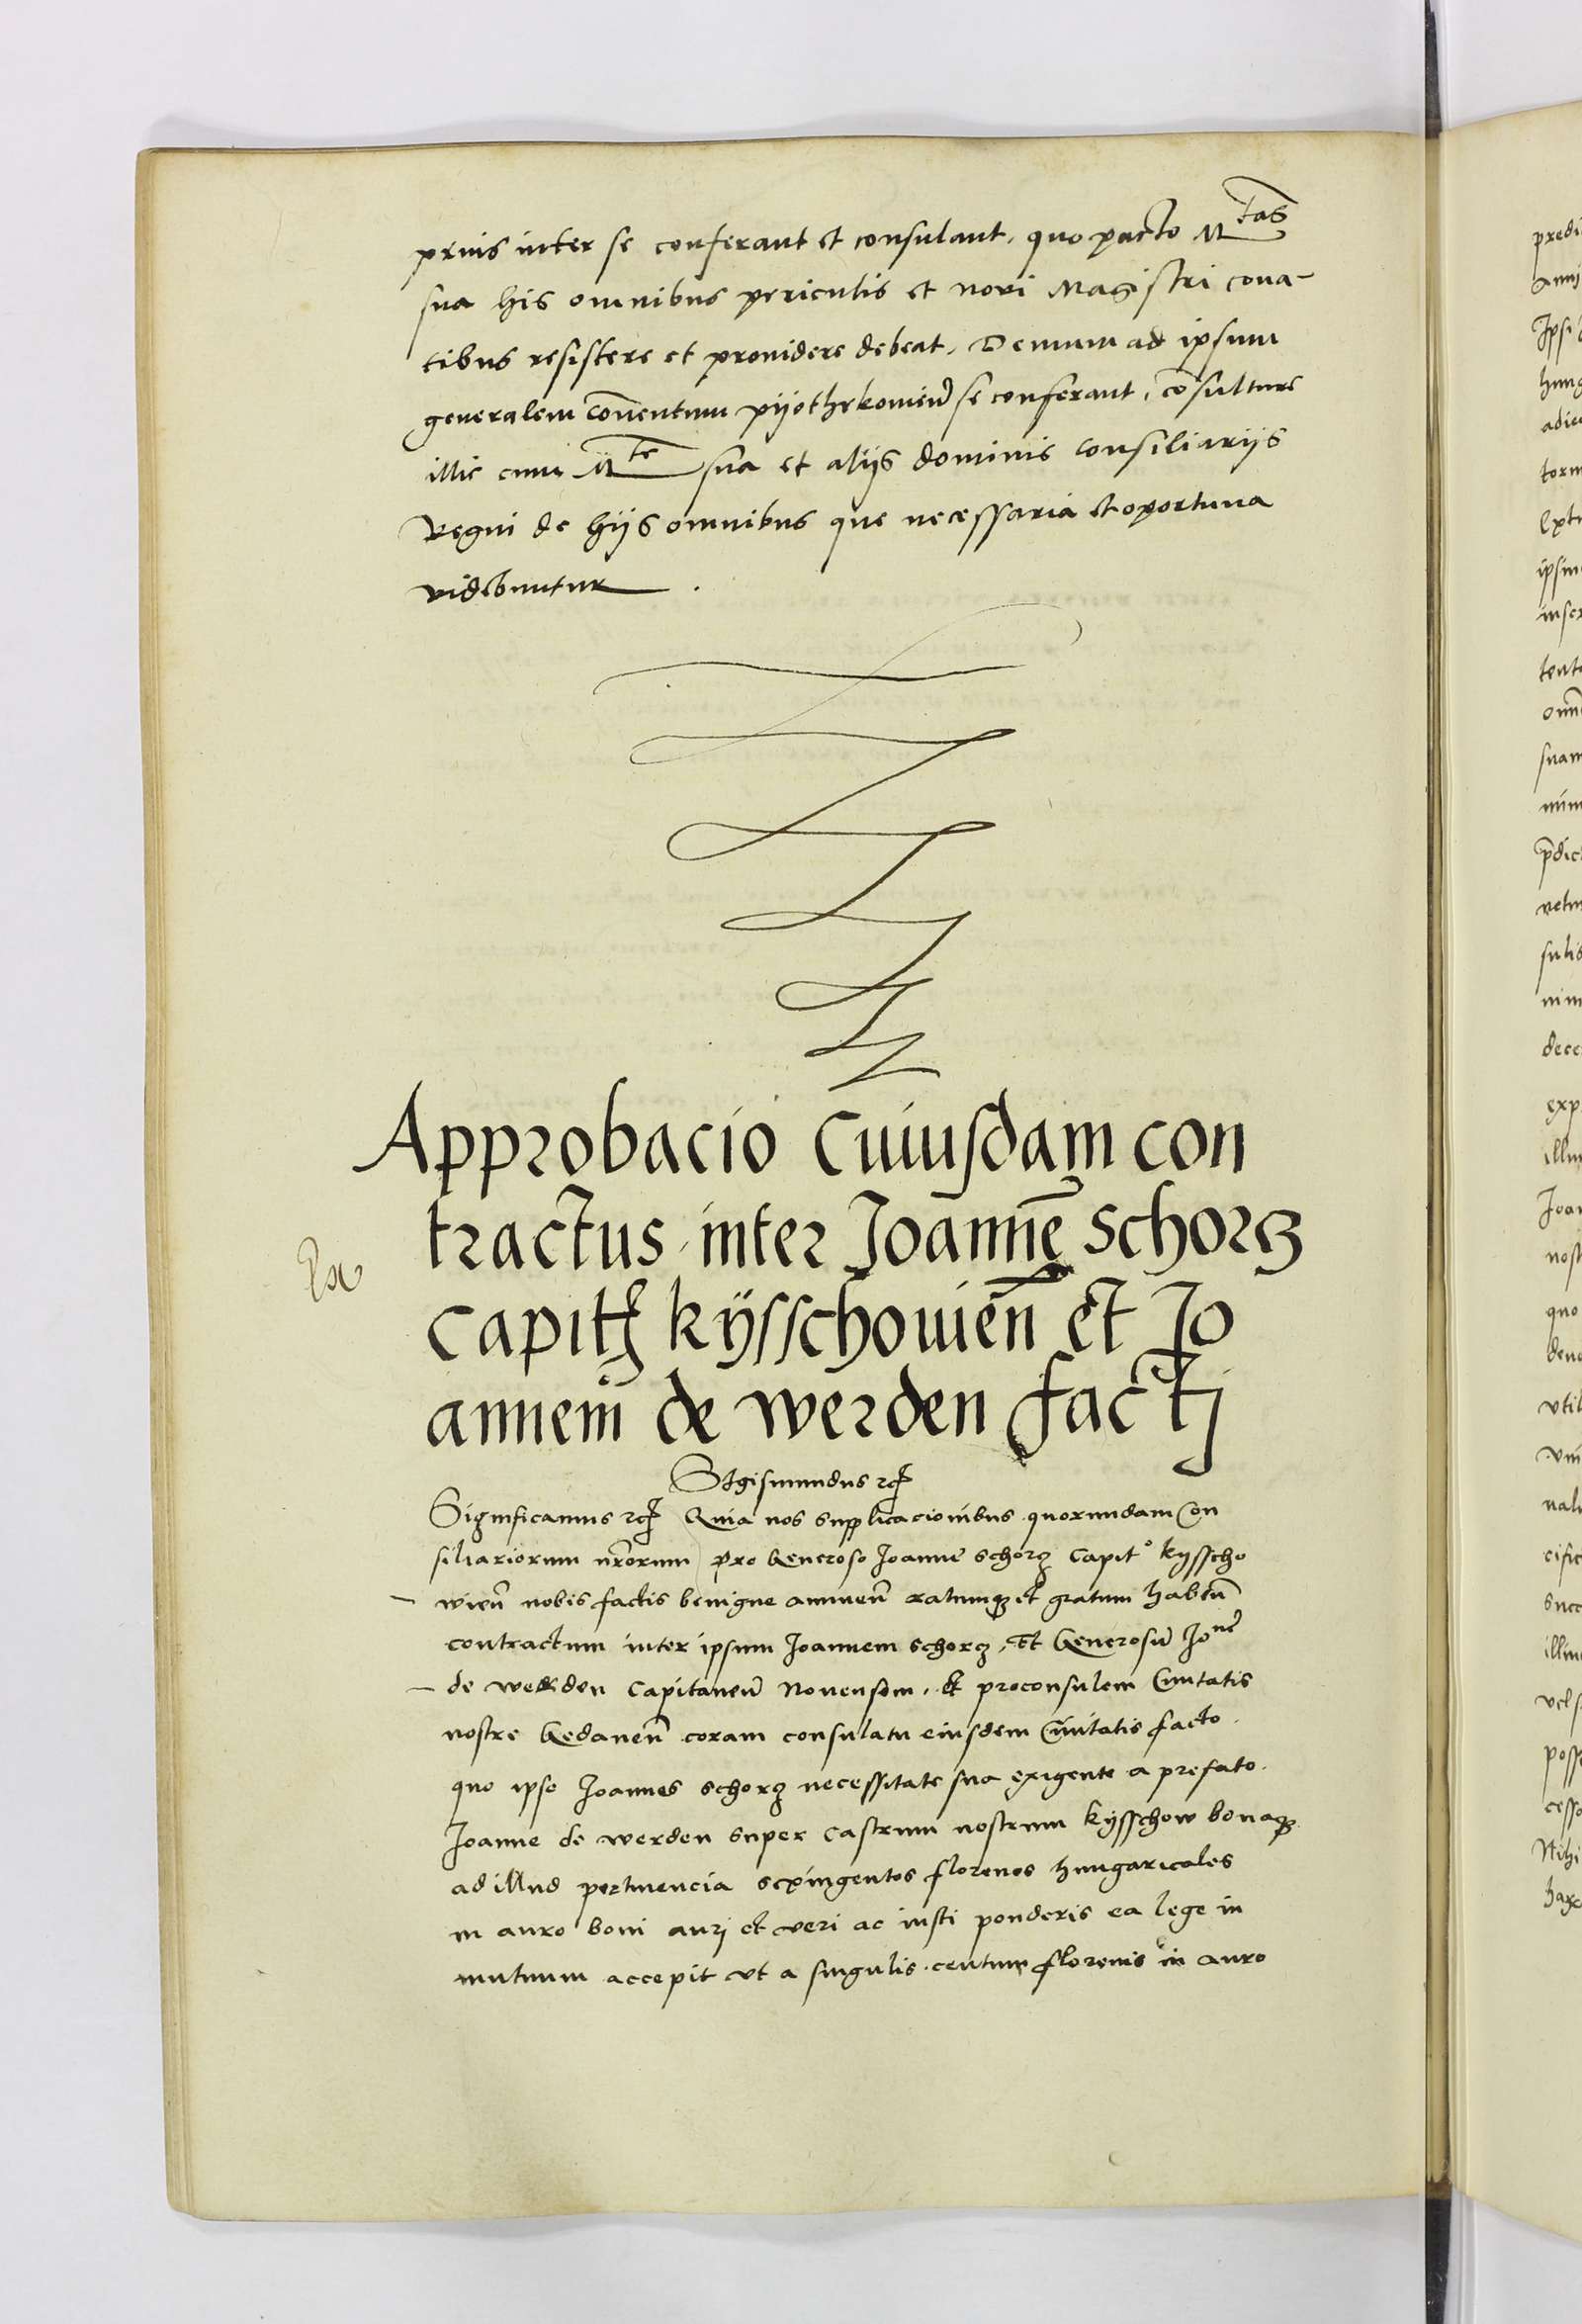 prius inter se conferant et consulant, quo pacto Mtas
sua his omnibus periculis et novi Magistri cona-
tibus resistere et providere debeat. Demum ad ipsum
generalem conventum pijothrkovien̄ se conferant, cōsulture
illic cum Mte sua et alijs dominis consiliarijs
Regni de hijs omnibus que necessaria et oportuna
videbuntur.
Approbacio cuiusdam con
tractus inter Joannē Schorcz
capit kÿsschovien̄ et Jo
annem de werden factj
Sigismundus rc
Significamus rc Quia nos supplicacionibus quorundam Con
siliariorum nrōrum pro Generoso Joanne Schorcz Capito kysscho
wien̄ nobis factis benigne annuen̄ ratumqz et gratum haben̄
contractum inter ipsum Joannem schorcz, Et Generosū Jonē
de werden Capitaneū Novensem, et proconsulem Civitatis
nostre Gedanen̄ coram consulatu eiusdem Civitatis facto
quo ipse Joannes schorcz necessitate sua exigente a prefato
Joanne de werden super castrum nostrum kysschow bonaqz
ad illud pertinencia sexingentos florenos hungaricales
in auro boni aurj et veri ac iusti ponderis ea lege in
mutuum accepit vt a singulis centum florenis in auro